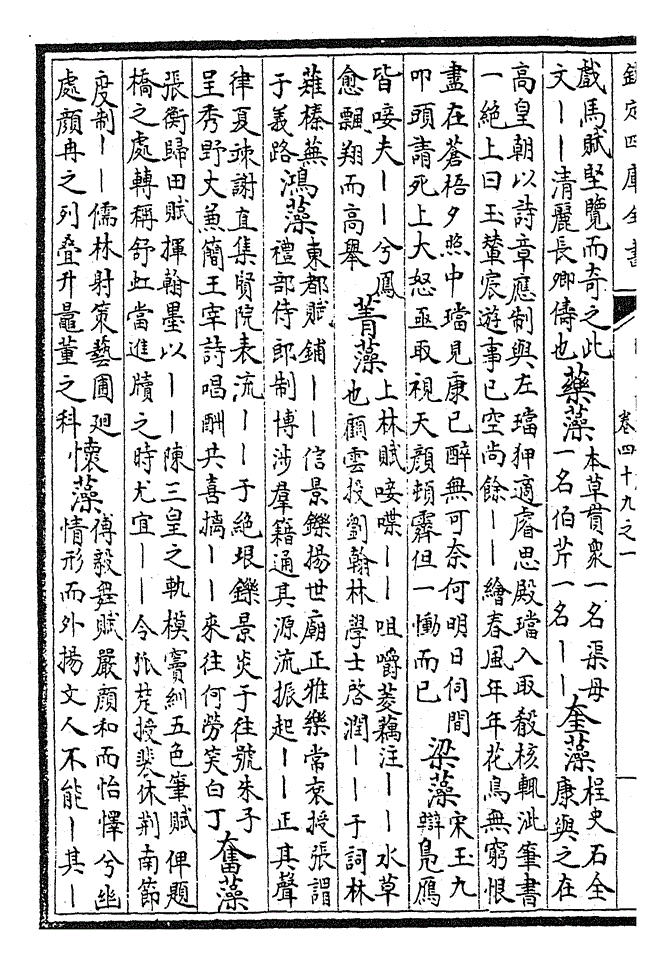 欽定四庫全書
卷四十九之一
戲馬賦堅覽而奇之此
文丨丨清麗長卿儔也
藥藻
本草貫衆一名渠母
一名伯芹一名丨丨
奎藻
桯史石全
康與之在
高皇朝以詩章應制與左璫狎適睿思殿璫入取殽核輒泚筆書
一絶上曰玉輦宸遊事已空尚餘丨丨繪春風年年花鳥無窮恨
盡在蒼梧夕照中璫見康已醉無可奈何明日伺間
叩頭請死上大怒亟取視天顔頓霽但一慟而已
梁藻
宋玉九
辯鳧鴈
皆唼夫丨丨兮鳳
愈飄翔而高舉
菁藻
上林賦唼喋丨丨咀嚼菱藕注丨丨水草
也顧雲投劉翰林學士啓潤丨丨于詞林
薙榛蕪
于義路
鴻藻
東都賦鋪丨丨信景鑠揚世廟正雅樂常衮授張謂
禮部侍郎制博涉羣籍通其源流振起丨丨正其聲
律夏竦謝直集賢院表流丨丨于絶垠鑠景炎于往號朱子
呈秀野大兼簡王宰詩唱酬共喜摛丨丨來往何勞笑白丁
奮藻
張衡歸田賦揮翰墨以丨丨陳三皇之軌模竇紃五色筆賦俾題
橋之處轉稱舒虹當進牘之時尤宜丨丨令狐楚授裴休荆南節
度制丨丨儒林射策藝圃廻
處顔冉之列疊升鼂董之科
懷藻
傅毅舞賦嚴顔和而怡懌兮幽
情形而外揚文人不能丨其丨